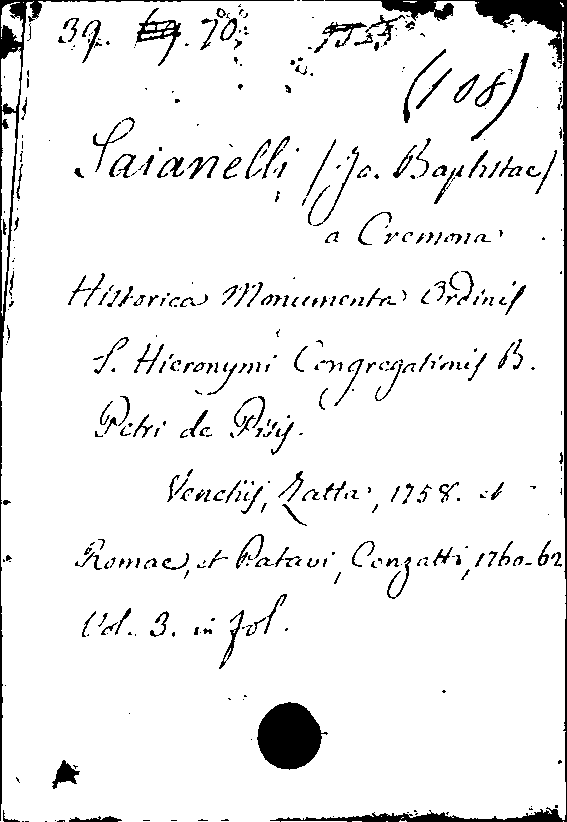 39. 70.
(108)
Saianelli (Jo. Baptistae)
a Cremona
Historica Monumenta Ordinis
S. Hieronymi Congregationis B.
Petri de Pisis.
Venetiis, Zatta, 1758. et
Romae, et Patavi, Conzatti, 1760-62
Vol. 3. in fol.